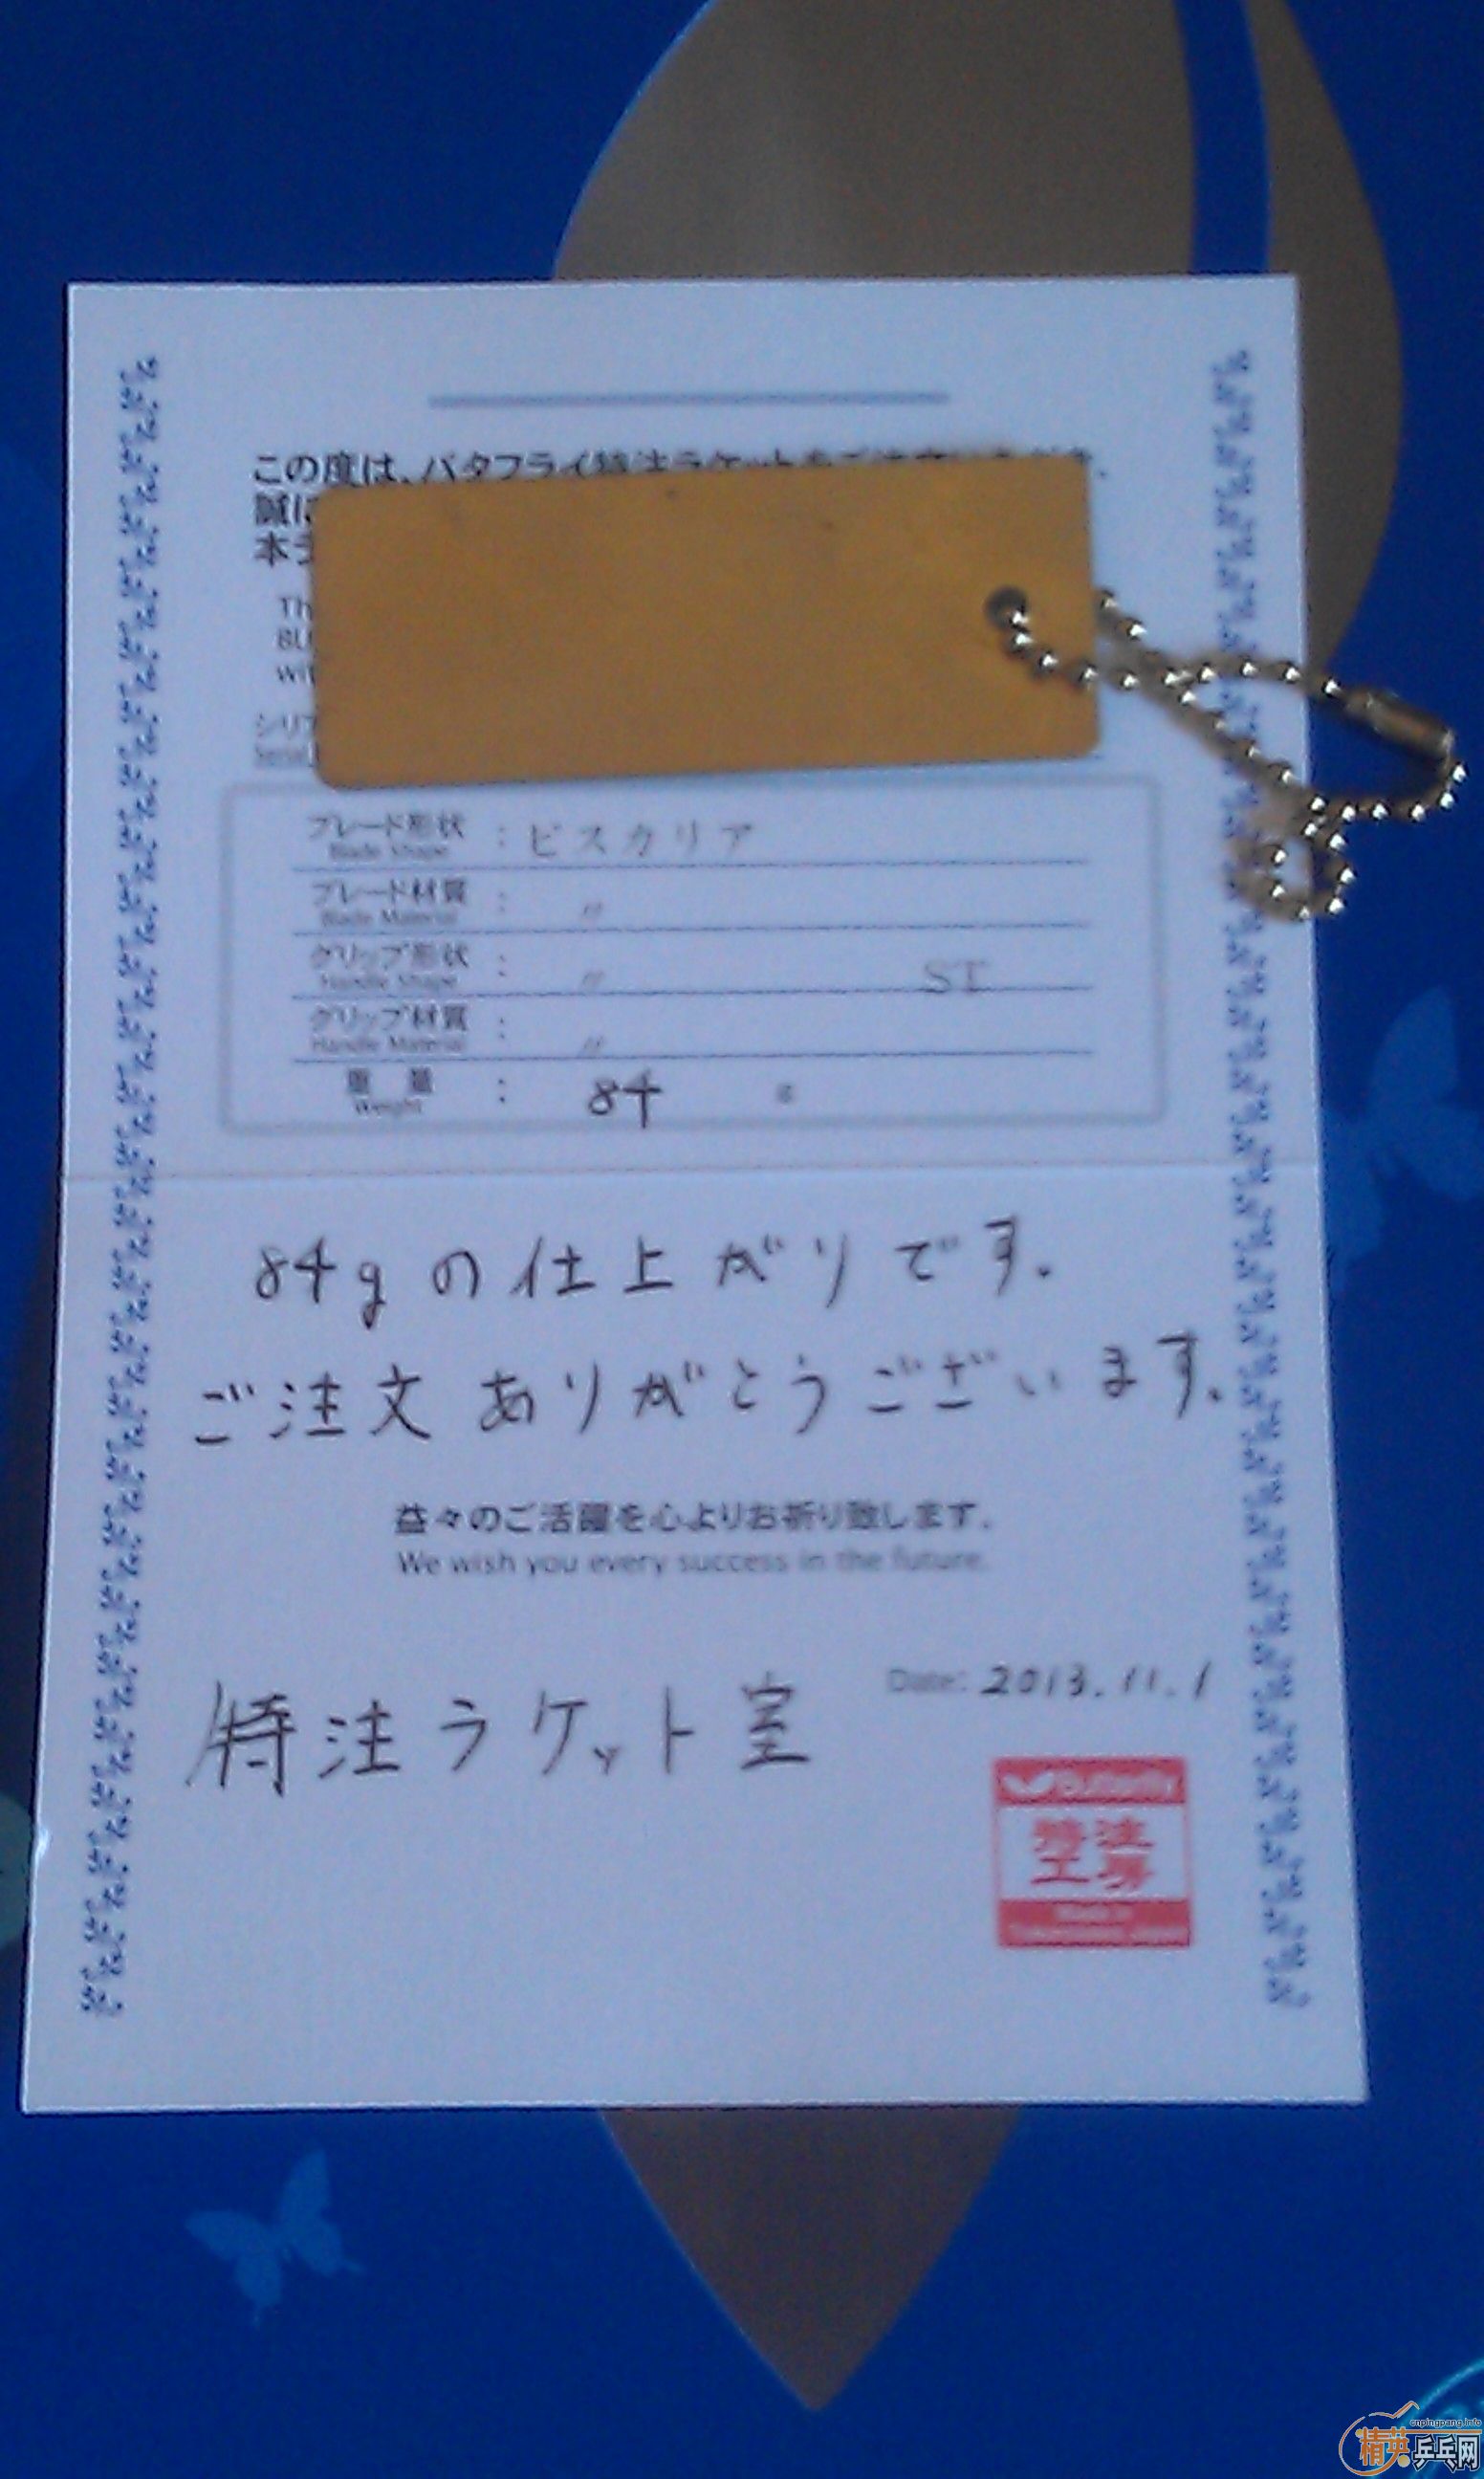 この度は、バタフライ特注ラケットをご注文いただき、
誠に
本ラ
Th
BU
wit
シリア
Serial
ブレード形状 : ビスカリア
Blade Shape
ブレード材質 : 〃
Blade Material
グリップ形状 : 〃 ST
Handle Shape
グリップ材質 : 〃
Handle Material
重量 : 84 g
Weight
84gの仕上がりです.
ご注文ありがとうございます.
益々のご活躍を心よりお祈り致します.
We wish you every success in the future.
Date: 2013.11.1
特注ラケット室
Butterfly
特注
工房
Made in
cnpingpang.info
精英乒乓网